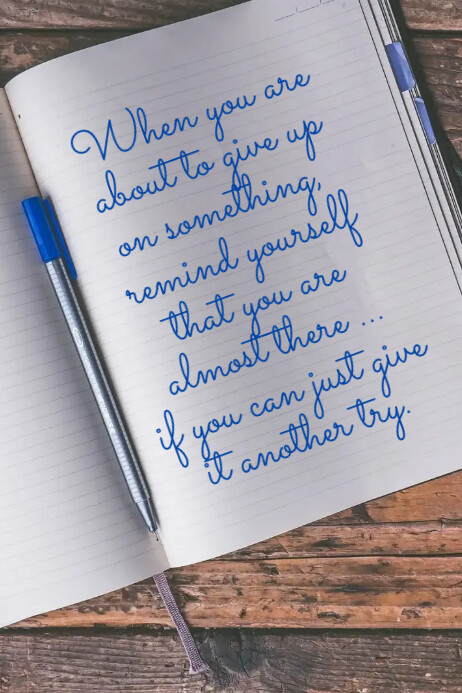 When you are
about to give up
on something,
remind yourself
that you are
almost there ...
if you can just give
it another try.